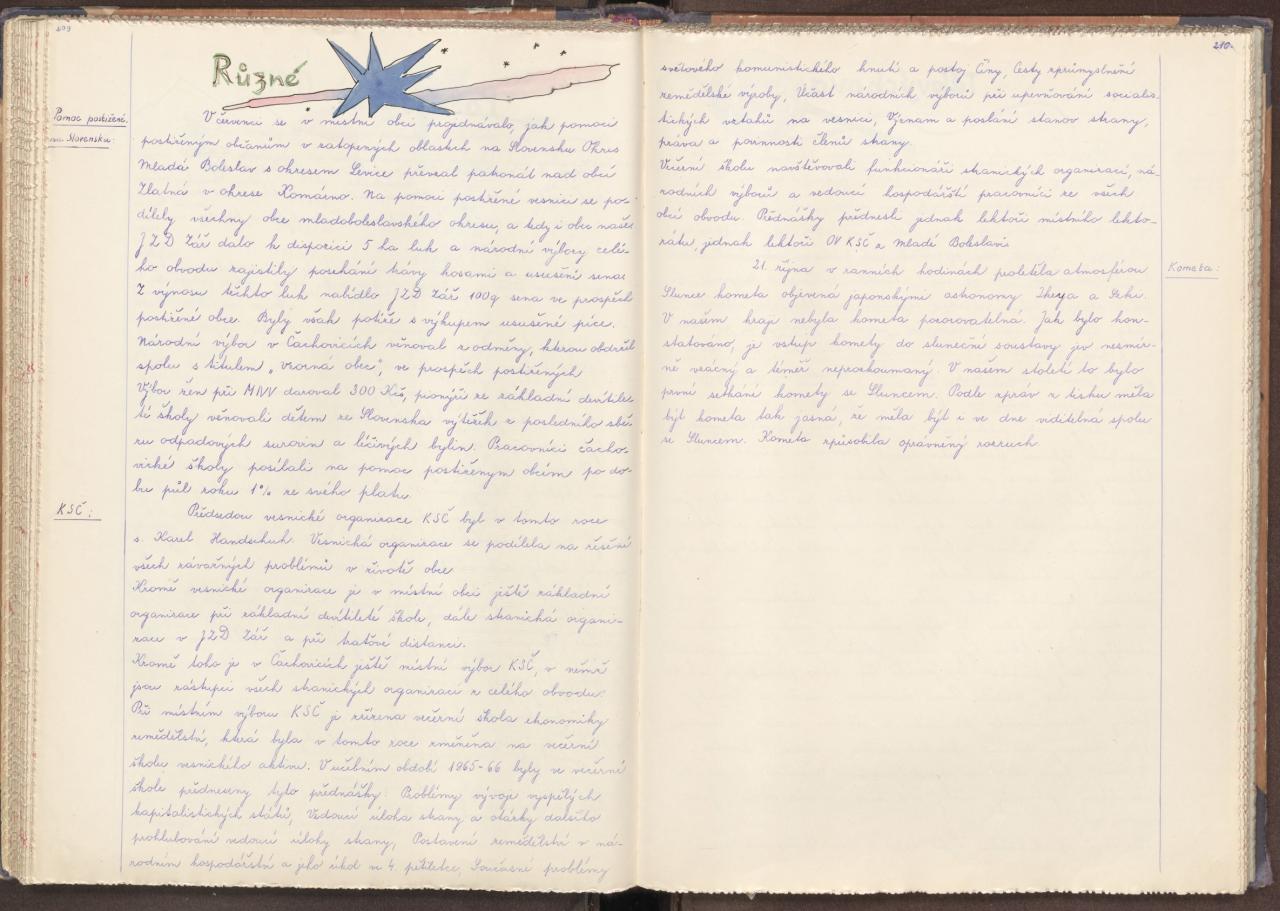 209
Různé
Pomoc postižené.
na Slovensku:
V červenci se v místní obci projednávalo, jak pomoci
postiženým občanům v zatopených oblastech na Slovensku. Okres
Mladá Boleslav s okresem Levice převzal patronát nad obcí
Zlatná v okrese Komárno. Na pomoci postižené vesnici se po-
dílely všechny obce mladoboleslavského okresu, a tedy i obec naše.
JZD Zář dalo k dispozici 5 ha luk a národní výbory celé-
ho obvodu zajistily posekání trávy kosami a usušení sena.
Z výnosu těchto luk nabídlo JZD Zář 100q sena ve prospěch
postižené obce. Byly však potíže s výkupem usušené píce.
Národní výbor v Čachovicích věnoval z odměny, kterou obdržel
spolu s titulem „Vzorná obec", ve prospěch postižených
Výbor žen při MNV daroval 300 Kčs, pionýři ze základní devítile-
té školy věnovali dětem ze Slovenska výtěžek z posledního sbě-
ru odpadových surovin a léčivých bylin. Pracovníci čacho-
vické školy posílali na pomoc postiženým obcím po do-
bu půl roku 1% ze svého platu.
KSČ:
Předsedou vesnické organizace KSČ byl v tomto roce
s. Karel Handschuh. Vesnická organizace se podílela na řešení
všech závažných problémů v životě obce
Kromě vesnické organizace je v místní obci ještě základní
organizace při základní devítileté škole, dále stranická organi-
zace v JZD Zář a při traťové distanci.
Kromě toho je v Čachovicích ještě místní výbor KSČ, v němž
jsou zástupci všech stranických organizací z celého obvodu.
Při místním výboru KSČ je zřízena večerní škola ekonomiky
zemědělství, která byla v tomto roce změněna na večerní
školu vesnického aktivu. V učebním období 1965-66 byly ve večerní
škole předneseny tyto přednášky: Problémy vývoje vyspělých
kapitalistických států, Vedoucí úloha strany a otázky dalšího
prohlubování vedoucí úlohy strany, Postavení zemědělství v ná-
rodním hospodářství a jeho úkol ve 4. pětiletce, Současné problémy
210.
světového komunistického hnutí a postoj Číny, Cesty zprůmyslnění
zemědělské výroby, Účast národních výborů při upevňování socialis-
tických vztahů na vesnici, Význam a poslání stanov strany,
práva a povinnosti členů strany.
Večerní školu navštěvovali funkcionáři stranických organizací, ná-
rodních výborů a vedoucí hospodářští pracovníci ze všech
obcí obvodu. Přednášky přednesli jednak lektoři místního lekto-
rátu, jednak lektoři OV KSČ z Mladé Boleslavi.
Kometa:
21. října v ranních hodinách proletěla atmosférou
Slunce kometa objevená japonskými astronomy Ikeya a Seki.
V našem kraji nebyla kometa pozorovatelná. Jak bylo kon-
statováno, je vstup komety do sluneční soustavy jev nesmír-
ně vzácný a téměř neprozkoumaný. V našem století to bylo
první setkání komety se Sluncem. Podle zpráv z tisku měla
být kometa tak jasná, že měla být i ve dne viditelná spolu
se Sluncem. Kometa způsobila oprávněný rozruch.